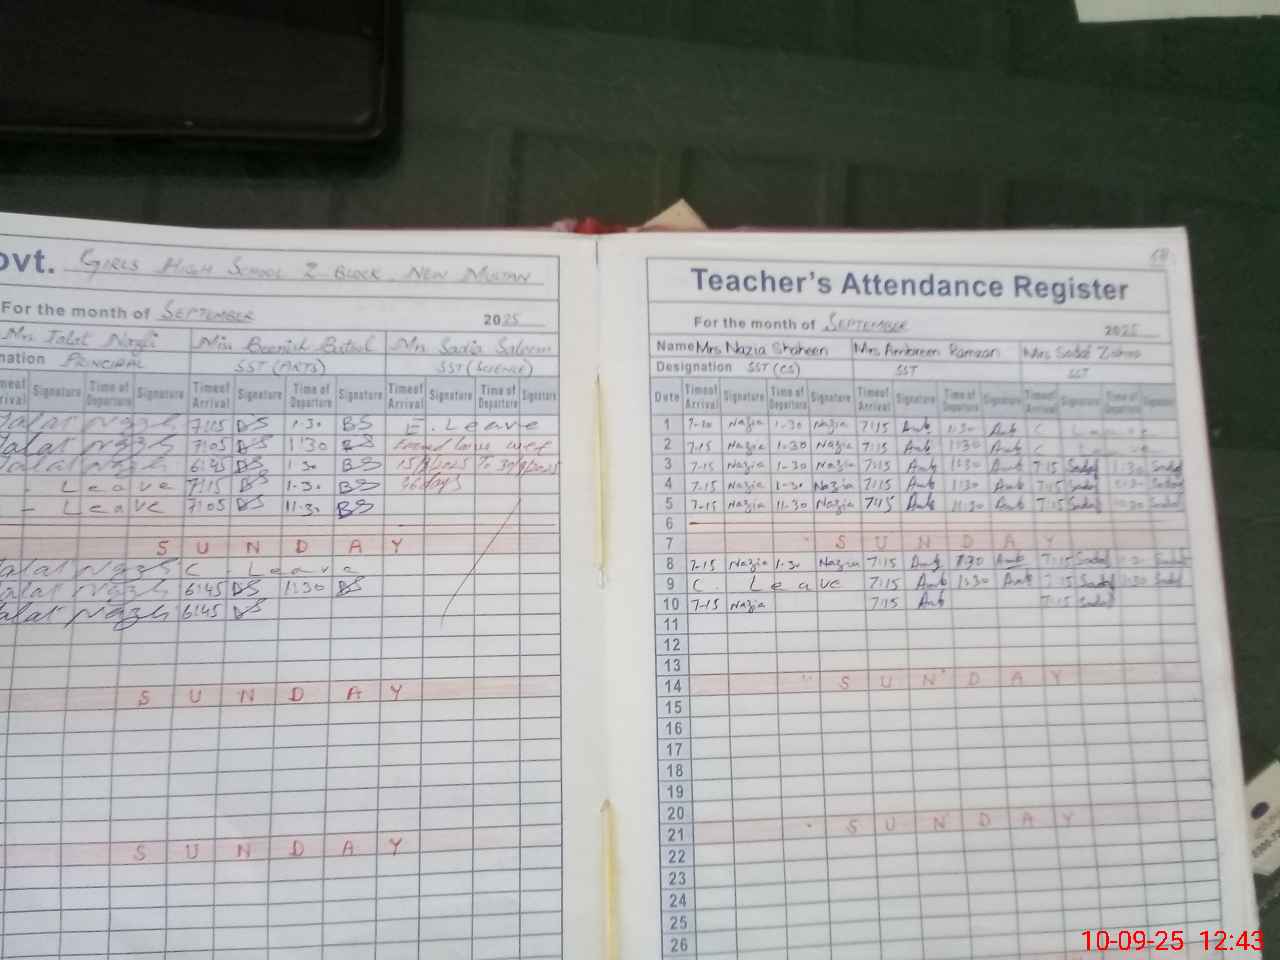 ovt. GIRLS HIGH SCHOOL Z BLOCK NEW MULTAN
For the month of SEPTEMBER 2025
Mrs Talat Miss Batool Mrs Sadia Saleem
nation PRINCIPAL SST (ARTS) SST (SCIENCE)
Time of Departure Signature Timeof Arrival Signature Time of Departure Signature Timeof Arrival Signature Time of Departure Signature
7:15 BS 1:30 BS E. Leave
7:05 BS 1:30 BS
6:45 BS 1:30 BS 15/9/2025 To
Leave 7:15 BS 1:30 BS 36 days
Leave 7:05 BS 11:30 BS
S U N D A Y
C. Leave
6:45 BS 1:30 BS
6:45 BS
S U N D A Y
S U N D A Y
Teacher's Attendance Register
For the month of SEPTEMBER 2025
Name Mrs Nazia Shaheen Mrs Ambreen Ramzan Mrs Sadaf
Designation SST (CS) SST SST
Date Timeof Arrival Signature Time of Departure Signature Timeof Arrival Signature Time of Departure Signature Time of Arrival Signature Time of Departure Signature
1 7-10 Nazia 1-30 Nazia 7:15 Amb 1:30 Amb C Leave
2 7-15 Nazia 1-30 Nazia 7:15 Amb 1:30 Amb C Leave
3 7-15 Nazia 1-30 Nazia 7:15 Amb 1:30 Amb 7:15 Sadaf 1:30 Sadaf
4 7-15 Nazia 1-30 Nazia 7:15 Amb 1:30 Amb 7:15 Sadaf Sadaf
5 7-15 Nazia 11-30 Nazia 7:15 Amb 11:30 Amb 7:15 Sadaf Sadaf
6
7 S U N D A Y
8 7-15 Nazia 1-30 Nazia 7:15 Amb 1:30 Amb 7:15 Sadaf Sadaf
9 C. Leave 7:15 Amb 1:30 Amb 7:15 Sadaf 1:30 Sadaf
10 7-15 Nazia 7:15 Amb 7:15 Sadaf
11
12
13
14 S U N D A Y
15
16
17
18
19
20
21 S U N D A Y
22
23
24
25
26
10-09-25 12:43